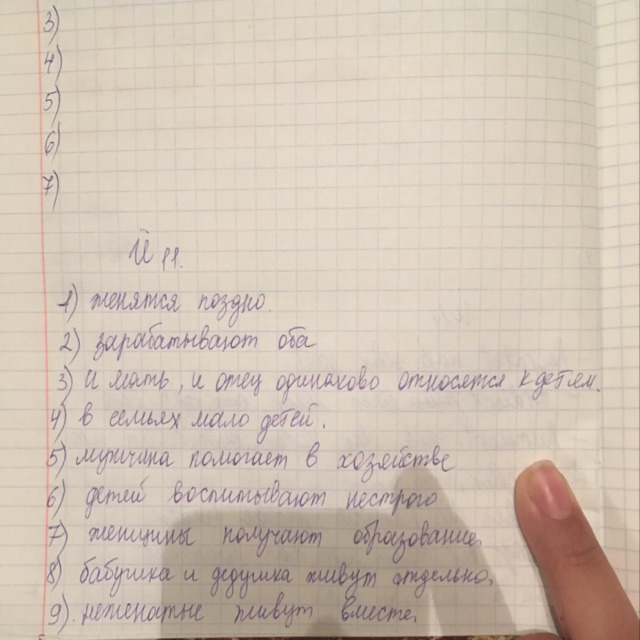 3)
4)
5)
6)
7)
Ü 11.
1) женятся поздно.
2) зарабатывают оба
3) и мать, и отец одинаково относятся к детям.
4) в семьях мало детей.
5) мужчина помогает в хозяйстве
6) детей воспитывают нестрого
7) женщины получают образование
8) бабушка и дедушка живут отдельно.
9). неженатые живут вместе.